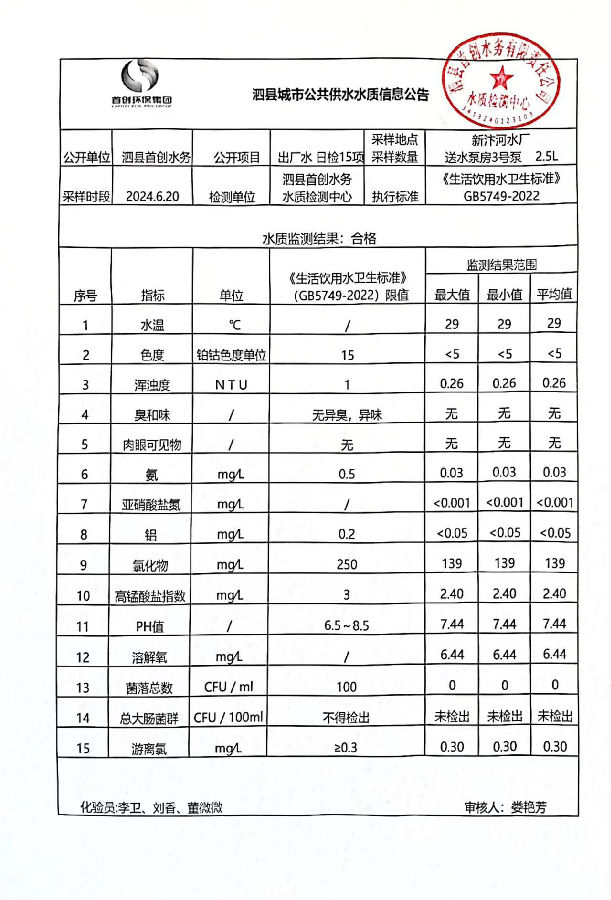 首创环保集团
泗县城市公共供水水质信息公告
泗县首创水务有限责任公司
水质检测中心
公开单位 泗县首创水务 公开项目 出厂水 日检15项 采样地点 采样数量 新汴河水厂 送水泵房3号泵 2.5L
采样时段 2024.6.20 检测单位 泗县首创水务 水质检测中心 执行标准 《生活饮用水卫生标准》 GB5749-2022
水质监测结果：合格
序号 指标 单位 《生活饮用水卫生标准》 （GB5749-2022）限值 监测结果范围
最大值 最小值 平均值
1 水温 ℃ / 29 29 29
2 色度 铂钴色度单位 15 <5 <5 <5
3 浑浊度 N T U 1 0.26 0.26 0.26
4 臭和味 / 无异臭，异味 无 无 无
5 肉眼可见物 / 无 无 无 无
6 氨 mg/L 0.5 0.03 0.03 0.03
7 亚硝酸盐氮 mg/L / <0.001 <0.001 <0.001
8 铝 mg/L 0.2 <0.05 <0.05 <0.05
9 氯化物 mg/L 250 139 139 139
10 高锰酸盐指数 mg/L 3 2.40 2.40 2.40
11 PH值 / 6.5～8.5 7.44 7.44 7.44
12 溶解氧 mg/L / 6.44 6.44 6.44
13 菌落总数 CFU / ml 100 0 0 0
14 总大肠菌群 CFU / 100ml 不得检出 未检出 未检出 未检出
15 游离氯 mg/L ≥0.3 0.30 0.30 0.30
化验员:李卫、刘香、董微微 审核人：娄艳芳